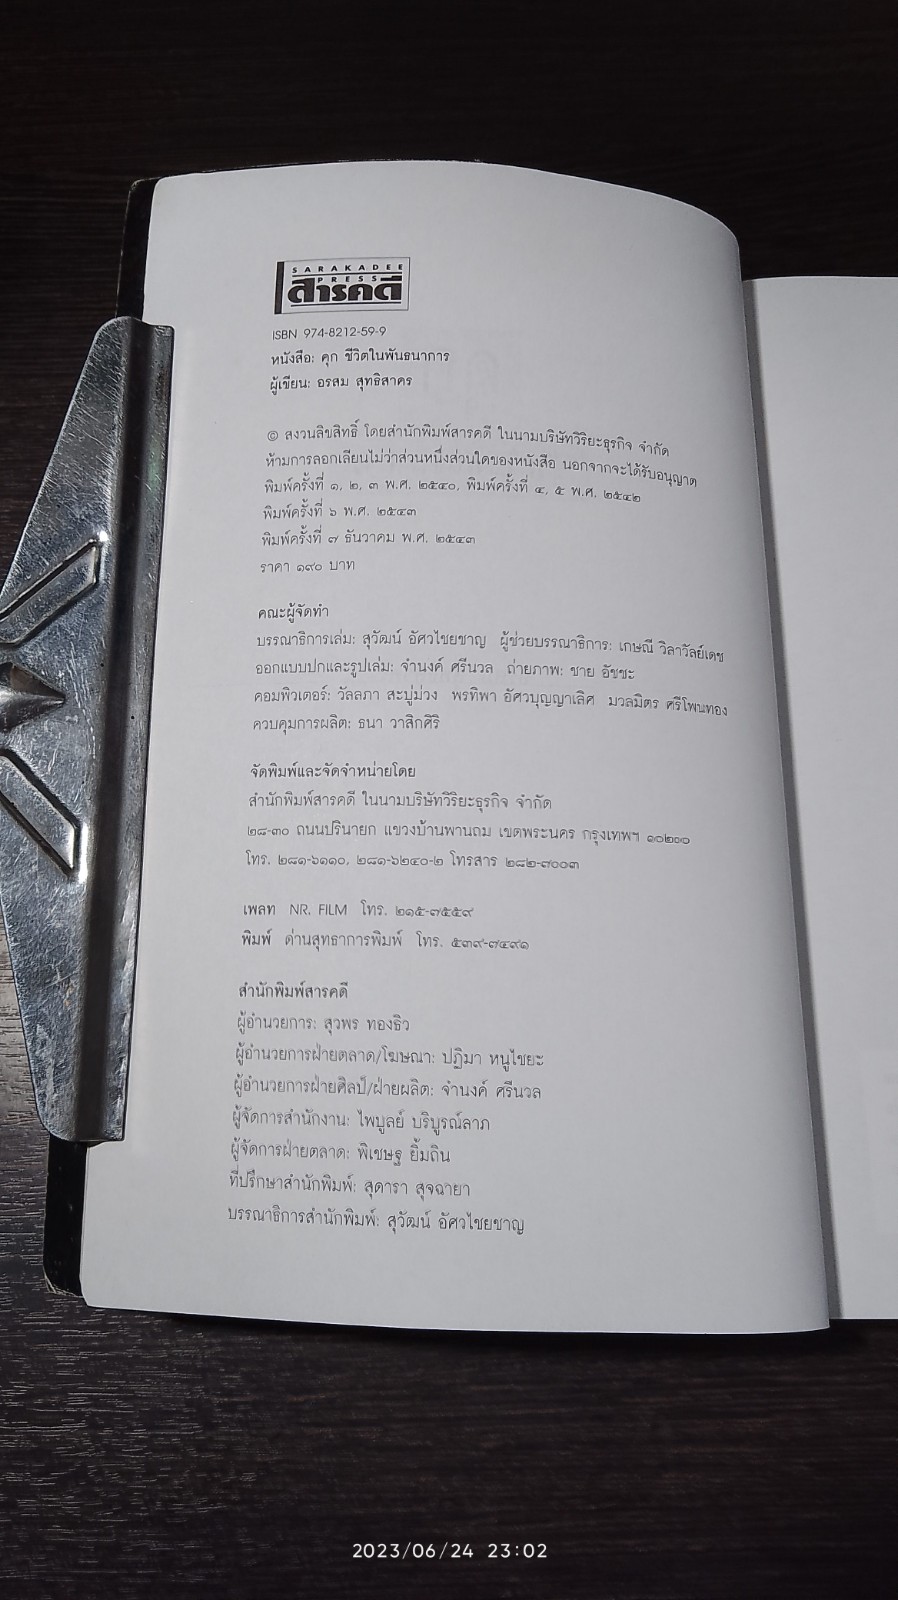 SARAKADEE
PRESS
สารคดี
ISBN 974-8212-59-9
หนังสือ: คุก ชีวิตในพันธนาการ
ผู้เขียน: อรสม สุทธิสาคร
© สงวนลิขสิทธิ์ โดยสำนักพิมพ์สารคดี ในนามบริษัทวิริยะธุรกิจ จำกัด
ห้ามการลอกเลียนไม่ว่าส่วนหนึ่งส่วนใดของหนังสือ นอกจากจะได้รับอนุญาต
พิมพ์ครั้งที่ ๑, ๒, ๓ พ.ศ. ๒๕๔๐, พิมพ์ครั้งที่ ๔, ๕ พ.ศ. ๒๕๔๒
พิมพ์ครั้งที่ ๖ พ.ศ. ๒๕๔๓
พิมพ์ครั้งที่ ๗ ธันวาคม พ.ศ. ๒๕๔๓
ราคา ๑๙๐ บาท
คณะผู้จัดทำ
บรรณาธิการเล่ม: สุวัฒน์ อัศวไชยชาญ ผู้ช่วยบรรณาธิการ: เกษณี วิลาวัลย์เดช
ออกแบบปกและรูปเล่ม: จำนงค์ ศรีนวล ถ่ายภาพ: ชาย อัชชะ
คอมพิวเตอร์: วัลลภา สะบู่ม่วง พรทิพา อัศวบุญญาเลิศ มวลมิตร ศรีโพนทอง
ควบคุมการผลิต: ธนา วาสิกศิริ
จัดพิมพ์และจัดจำหน่ายโดย
สำนักพิมพ์สารคดี ในนามบริษัทวิริยะธุรกิจ จำกัด
๒๘-๓๐ ถนนปรินายก แขวงบ้านพานถม เขตพระนคร กรุงเทพฯ ๑๐๒๐๐
โทร. ๒๘๑-๖๑๑๐, ๒๘๑-๖๒๔๐-๒ โทรสาร ๒๘๒-๗๐๐๓
เพลท NR. FILM โทร. ๒๑๕-๗๕๕๙
พิมพ์ ด่านสุทธาการพิมพ์ โทร. ๕๓๙-๗๔๙๑
สำนักพิมพ์สารคดี
ผู้อำนวยการ: สุวพร ทองธิว
ผู้อำนวยการฝ่ายตลาด/โฆษณา: ปฏิมา หนูไชยะ
ผู้อำนวยการฝ่ายศิลป์/ฝ่ายผลิต: จำนงค์ ศรีนวล
ผู้จัดการสำนักงาน: ไพบูลย์ บริบูรณ์ลาภ
ผู้จัดการฝ่ายตลาด: พิเชษฐ ยิ้มถิน
ที่ปรึกษาสำนักพิมพ์: สุดารา สุจฉายา
บรรณาธิการสำนักพิมพ์: สุวัฒน์ อัศวไชยชาญ
2023/06/24 23:02